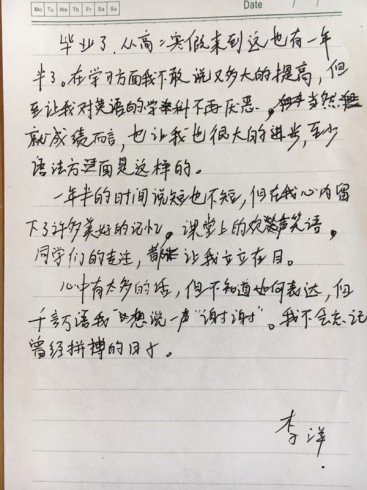 Mo Tu We Th Fr Sa Su
Date
毕业了.从高二寒假来到这也有一年
半了。在学习方面我不敢说又多大的提高，但
至让我对英语的学科不再厌恶.当然
就成绩而言，也让我也很大的进步，至少
语法方面是这样的。
一年半的时间说短也不短，但在我心内留
下了许多美好的记忆。课堂上的欢声笑语，
同学们的专注，都让我立立在目。
心中有太多的话，但不知道如何表达，但
千言万语我只想说一声“谢谢”。我不会忘记
曾经拼搏的日子。
李洋